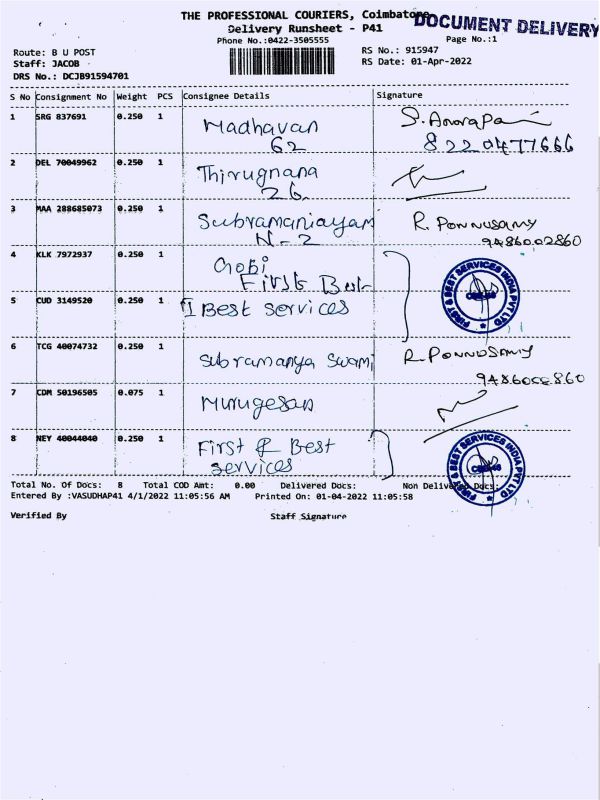 THE PROFESSIONAL COURIERS, Coimbatore
DOCUMENT DELIVERY
Delivery Runsheet - P41
Phone No.:0422-3505555
Page No.:1
Route: B U POST
RS No.: 915947
Staff: JACOB
RS Date: 01-Apr-2022
DRS No.: DCJB91594701
S No Consignment No Weight PCS Consignee Details Signature
1 SRG 837691 0.250 1 Madhavan
62
8220477666
2 DEL 70049962 0.250 1 Thirugnana
26
3 MAA 288685073 0.250 1 Subramaniayam R. PONNUSAMY
N-2 9486002860
4 KLK 7972937 0.250 1 Gobi
First Best
5 CUD 3149520 0.250 1 I Best services
FIRST & BEST SERVICES INDIA PVT LTD
6 TCG 40074732 0.250 1 Subramanya Swami R. PONNUSAMY
9486002860
7 CDM 50196505 0.075 1 Murugesan
8 NEY 40044040 0.250 1 First & Best
services
FIRST & BEST SERVICES INDIA PVT LTD
Total No. Of Docs: 8 Total COD Amt: 0.00 Delivered Docs: Non Delivered Docs:
Entered By :VASUDHAP41 4/1/2022 11:05:56 AM Printed On: 01-04-2022 11:05:58
Verified By Staff Signature